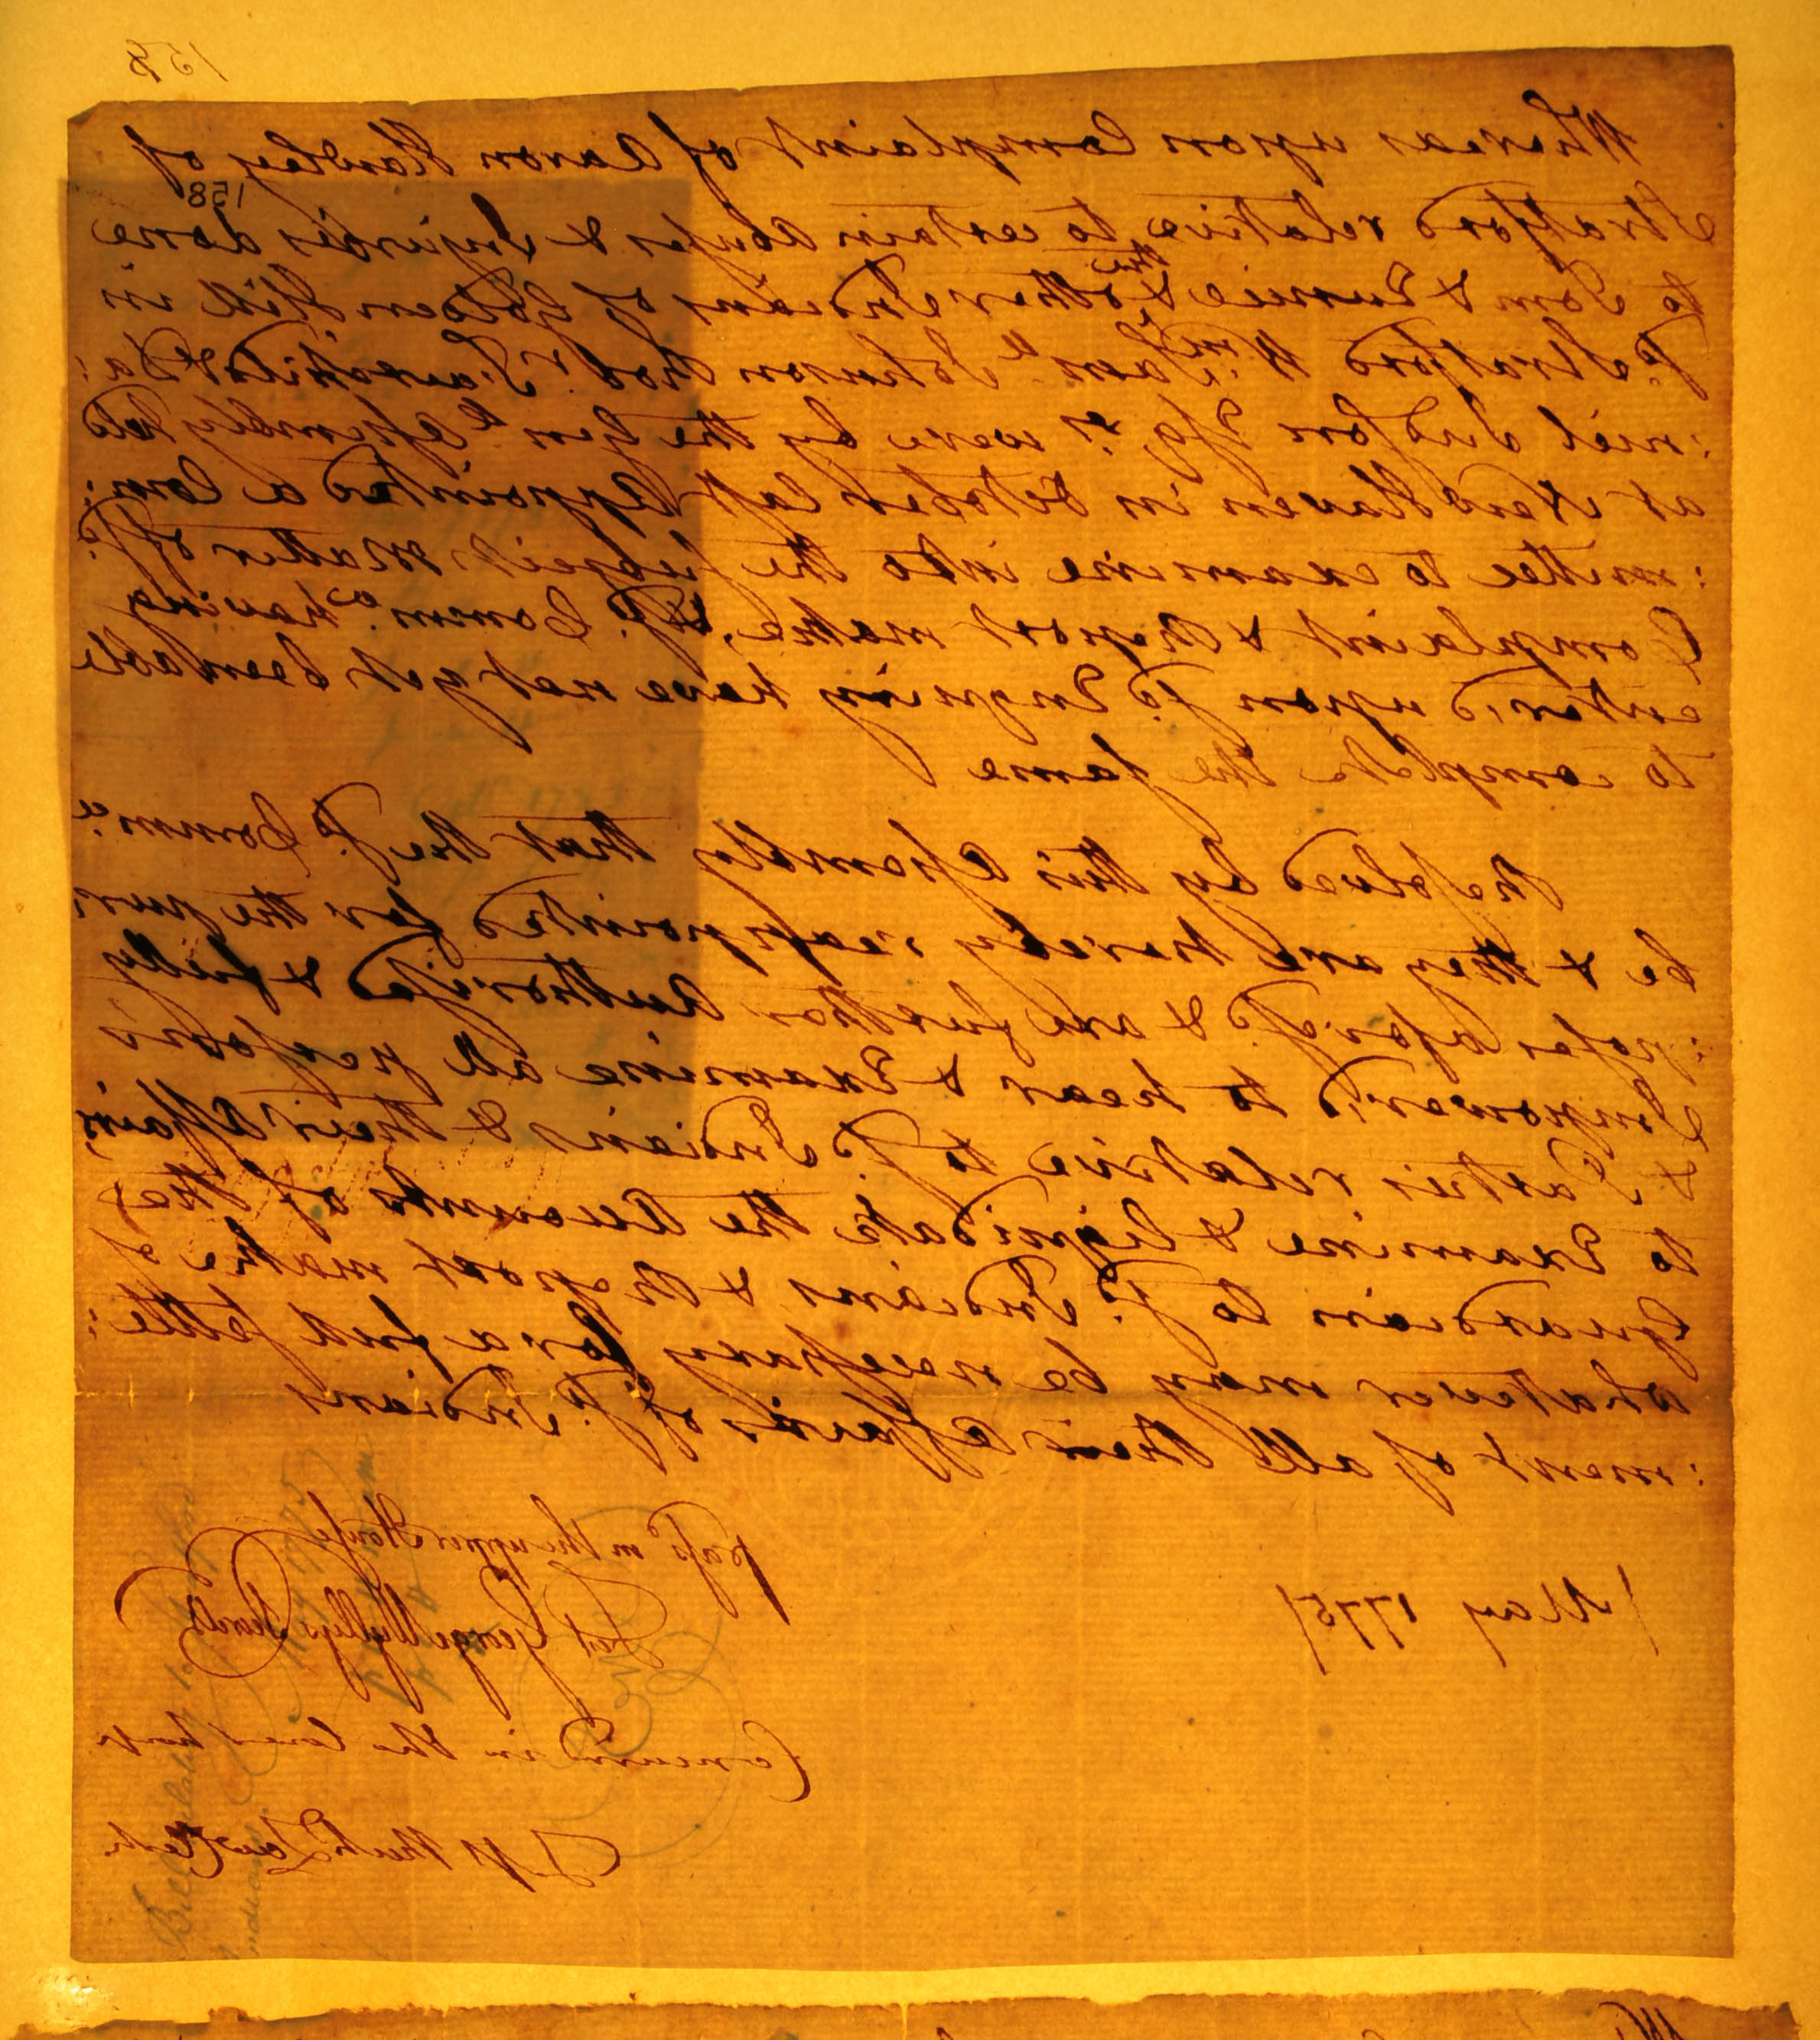 158
Whereas upon Complaint of Aaron Hawley of
158
Stratford relative to certain abuses & Injuries done
to Tom & Eunice & other the Indians of Golden Hill in
sd. Stratford Wm. Saml. Johnson Thos. Fairchild & Da:
:niel Judson Esqrs. were by the Genll. Assembly held
at New Haven in October last Appointed a Com:
:mittee to examine into the subject Matter of sd.
Complaint & Report make, & sd. Commee. having
enter'd upon sd. Enquiry have not yet been able
to complete the same
Resolved by this Assembly that the sd. Commee.
be & they are hereby reappointed for the pur:
:poses aforesd. & are further Authorised & fully
Impower'd to hear & Examine all persons
& Parties relative to sd. Indians & their Affairs,
to Examine & liquidate the Accounts of the
Guardian to sd. Indians & Report make of
whatever may be necessary for a just settle:
:ment of all their affairs of sd. Indians
/ May 1775/
Pass'd in the upper House
Test George Wyllys Secretr.
Concurd in the lower house
Test Richd. Law Clerk
Bill relating to
Indians
May 1775